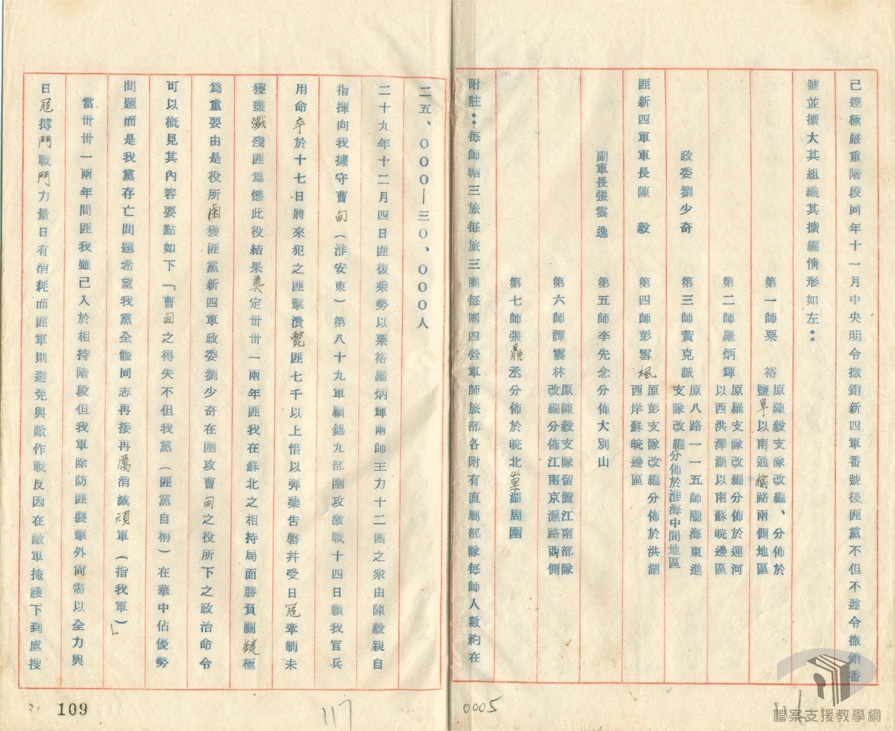 已達極嚴重階段同年十一月中央明令撤銷新四軍番號後匪黨不但不遵令撤銷番
號並擴大其組織其擴編情形如左：
第一師粟　裕
原陳毅支隊改編、分佈於
鹽阜以南通揄路兩側地區
第二師羅炳輝
原羅支隊改編分佈於運河
以西洪澤湖以南蘇皖邊區
政委劉少奇
第三師黃克誠
原八路一一五師隴海東進
支隊改編分佈於淮海中間地區
匪新四軍軍長陳　毅
第四師彭雪楓
原彭支隊改編分佈於洪湖
西岸蘇皖邊區
副軍長張雲逸
第五師李先念分佈大別山
第六師譚震林
原陳毅支隊留置江南部隊
改編分佈江南京滬路兩側
第七師張鼎丞分佈於皖北巢湖周圍
附註：每師轄三旅每旅三團每團四營軍師旅部各附有直屬部隊每師人數約在
二五、000—三0、000人
二十九年十二月四日匪復乘勢以粟裕羅炳輝兩師主力十二團之眾由陳毅親自
指揮向我據守曹甸（淮安東）第八十九軍顧錫九部圍攻激戰十四日賴我官兵
用命卒於十七日將來犯之匪擊潰斃匪七千以上惜以彈藥告罄并受日寇牽制未
獲盡殲殘匪為憾此役結果奠定卅卅一兩年匪我在蘇北之相持局面勝負關鍵極
為重要由是役所鹵獲匪黨新四軍政委劉少奇在圍攻曹甸之役所下之政治命令
可以概見其內容要點如下「曹甸之得失不但我黨（匪黨自稱）在華中佔優勢
問題而是我黨存亡問題希望我黨全體同志再接再厲消滅頑軍（指我軍）」
當卅卅一兩年間匪我雖已入於相持階段但我軍除防匪襲擊外尚需以全力與
日寇搏鬥戰鬥力量日有消耗而匪軍則避免與敵作戰反因在敵軍掩護下到處搜
109
117
0005
檔案支援教學網